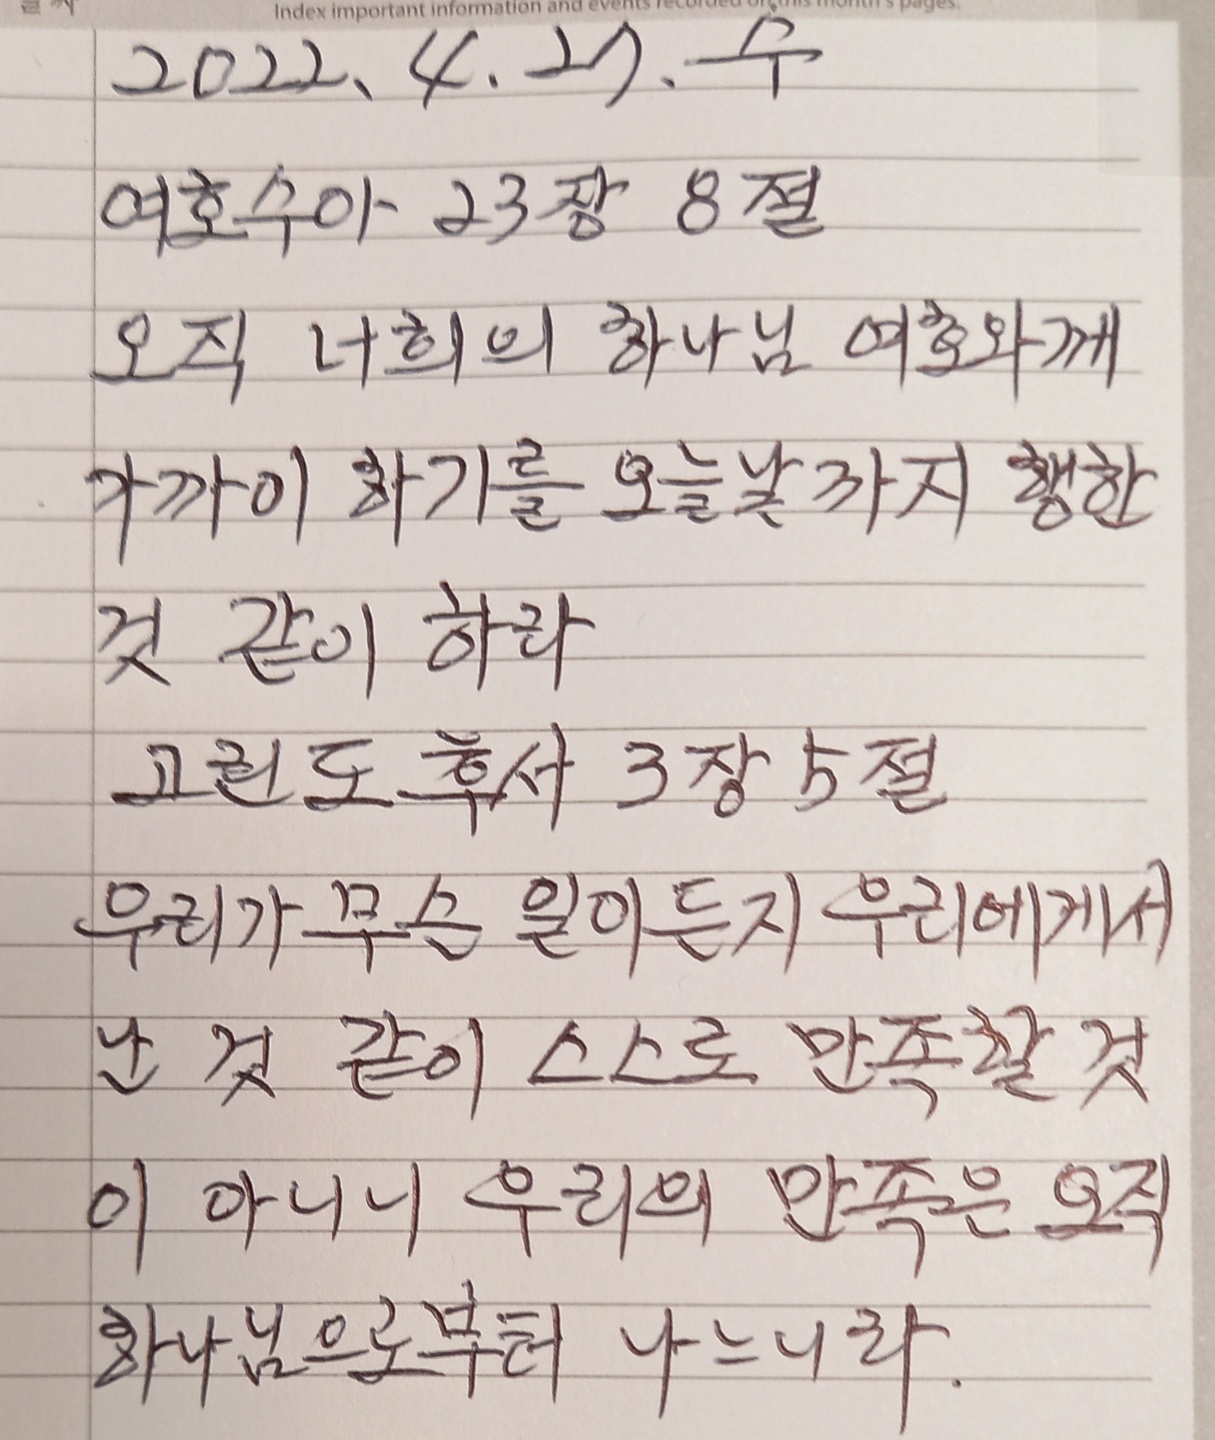 Index important information and events recorded on this month's pages.
2022. 4. 27. 수
여호수아 23장 8절
오직 너희의 하나님 여호와께
가까이 하기를 오늘날까지 행한
것 같이 하라
고린도후서 3장 5절
우리가 무슨 일이든지 우리에게서
난 것 같이 스스로 만족할 것
이 아니니 우리의 만족은 오직
하나님으로부터 나느니라.